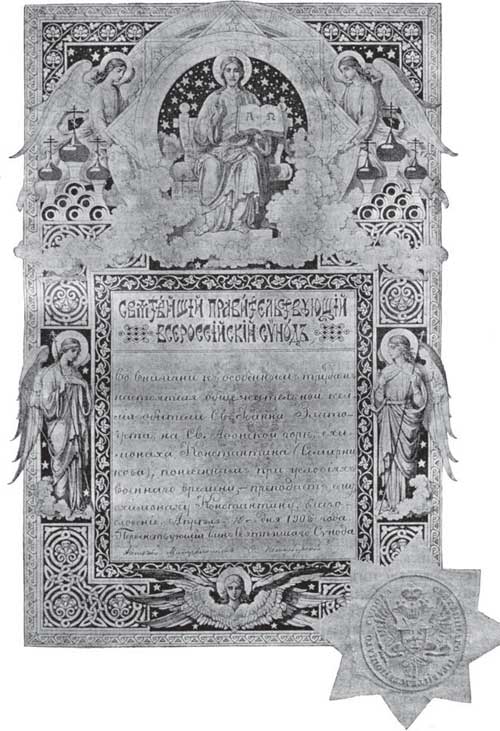 А Ω
СВЯТѢЙШІЙ ПРАВИТЕЛЬСТВУЮЩІЙ
ВСЕРОССІЙСКІЙ СѴНОДЪ
Во вниманіи къ особеннымъ трудамъ
настоятеля общежительной кел-
ліи обители Св. Іоанна Злато-
уста на Св. Аѳонской горѣ, схи-
монаха Константина (Семерни-
кова), понесеннымъ при условіяхъ
военнаго времени,—преподаетъ ему,
схимонаху Константину, благо-
словеніе. Апрѣля дня года
Первенствующій членъ Святѣйшаго Сѵнода
Антоній Митрополитъ